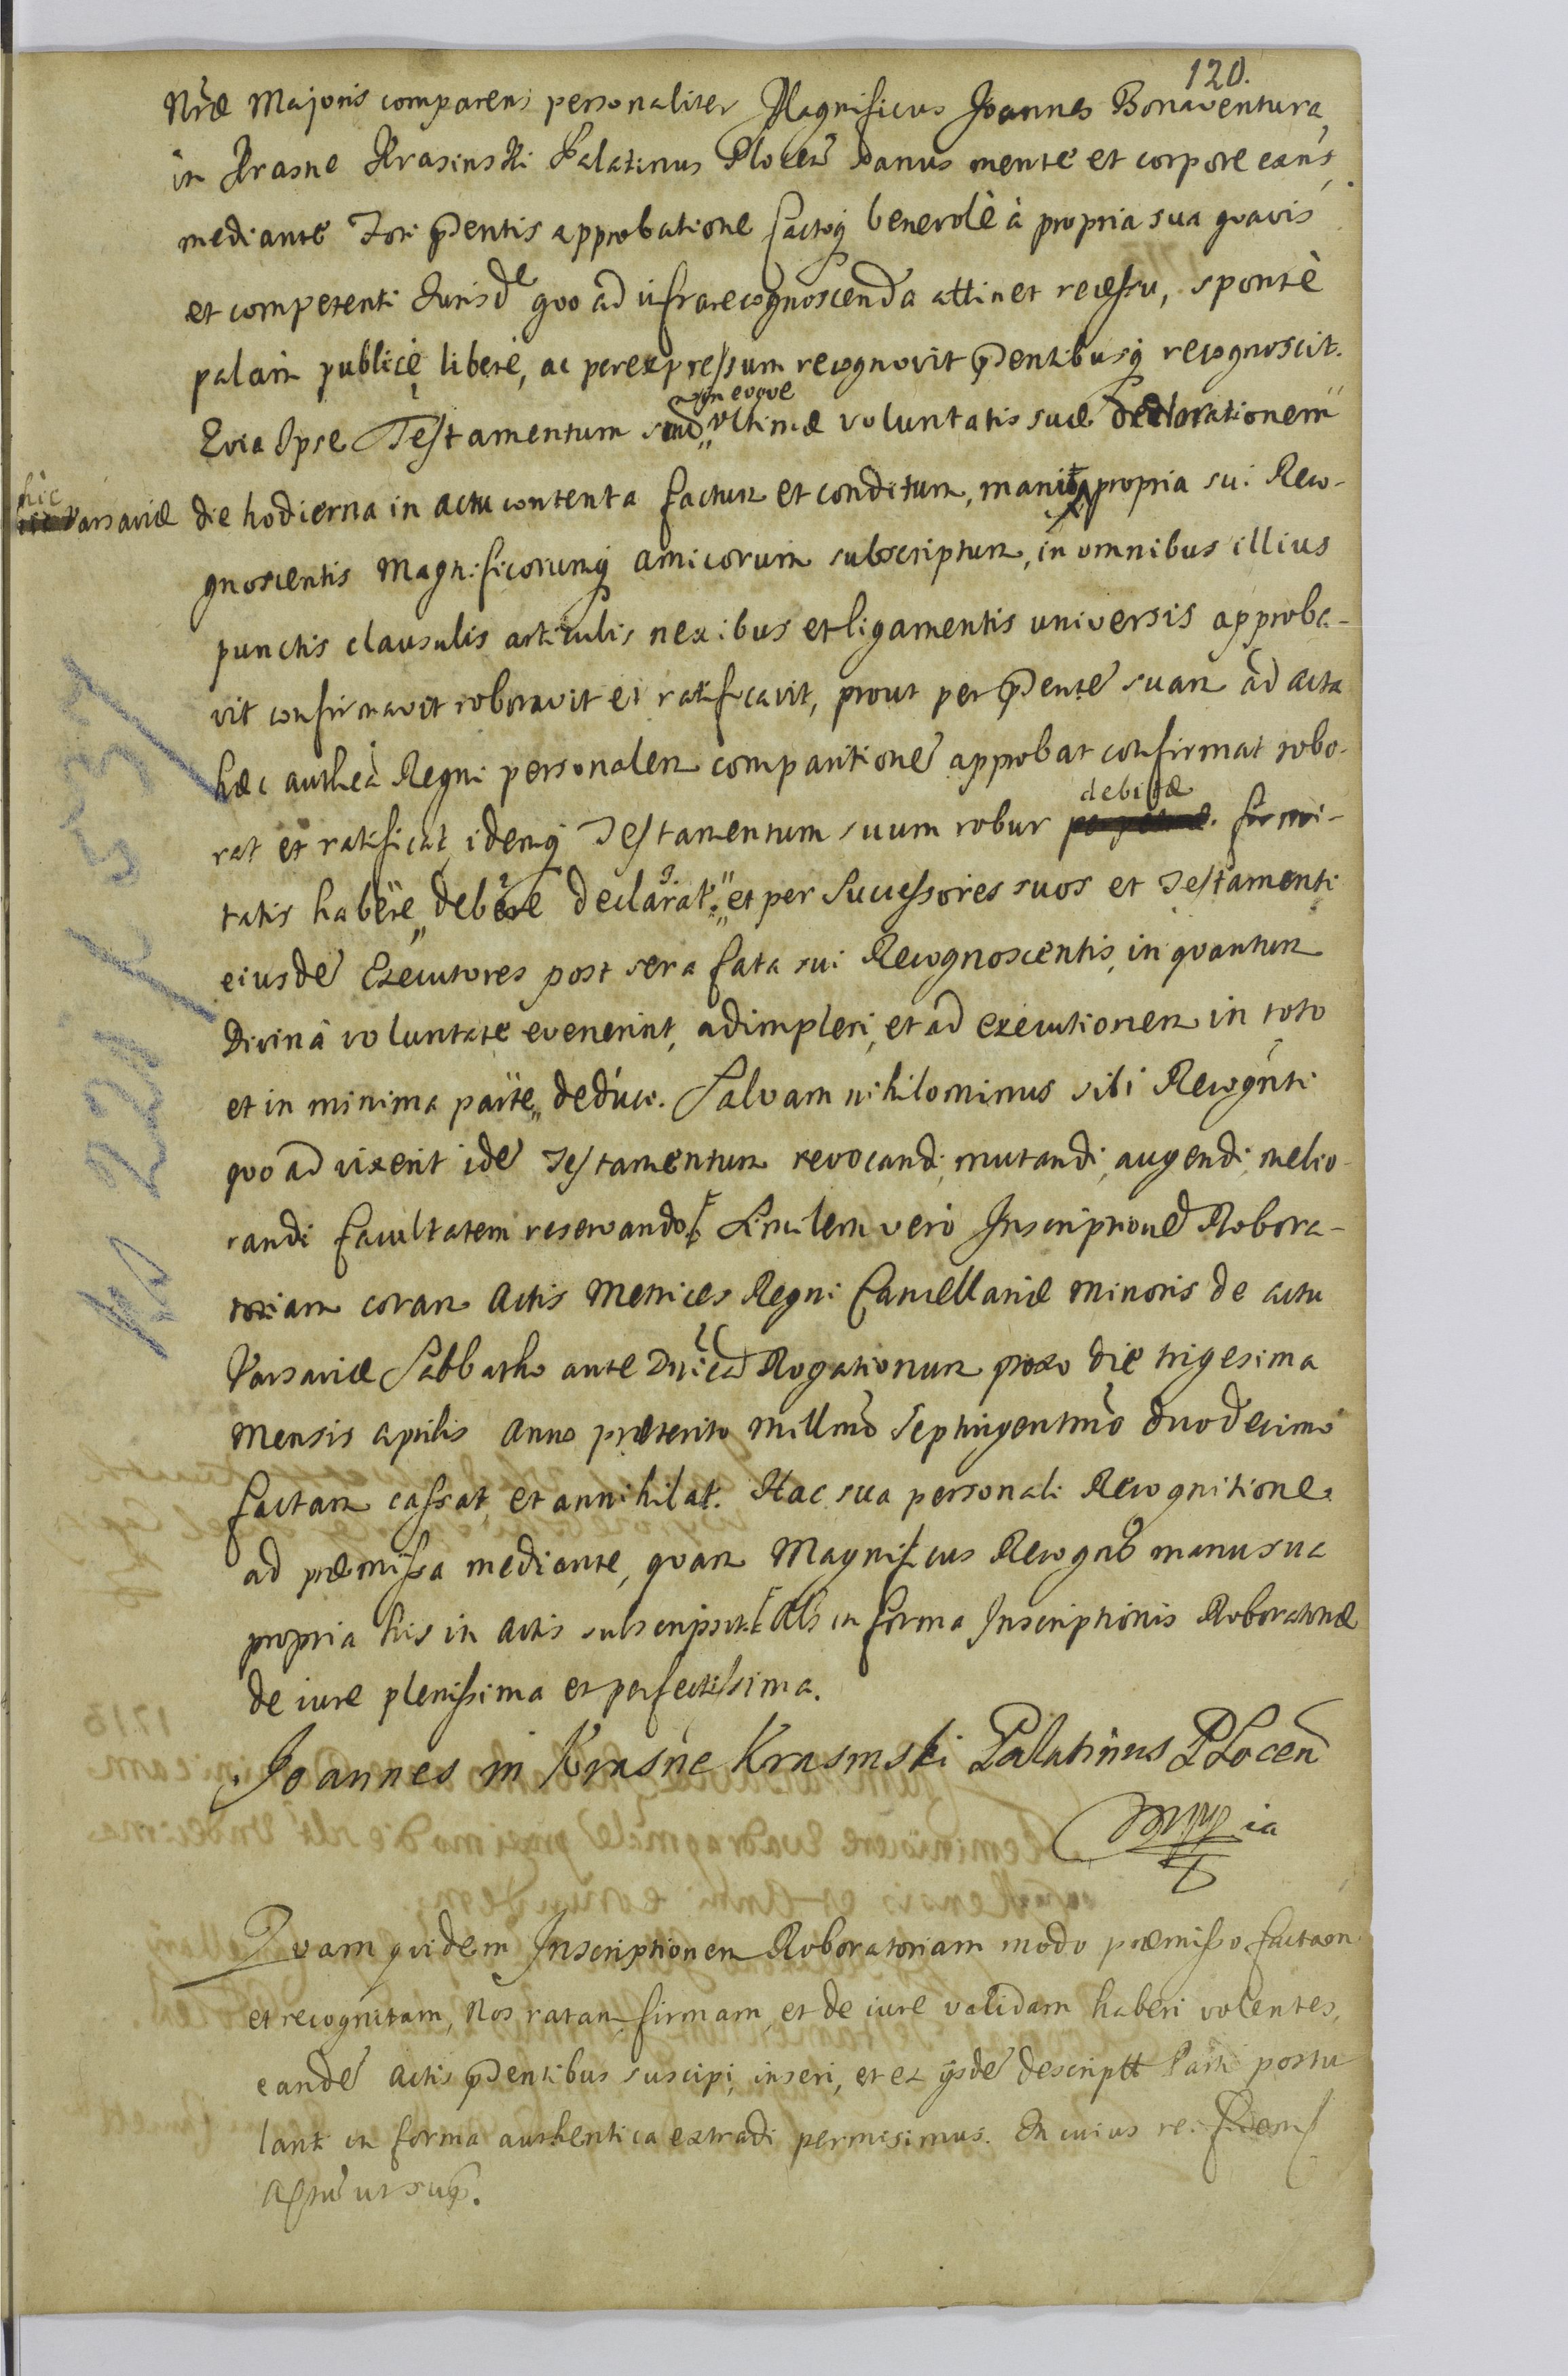 120.
Nræ Majoris comparens personaliter Magnificus Joannes Bonaventura
in Krasne Krasinski Palatinus Plocen sanus mente et corpore exns,
mediante Fori pntis approbatione factoq benevolè à propria sua quavis
et competenti Jurisdne quo ad infrarecognoscenda attinet recessu, spontè
palam publicè liberè, ac per expressum recognovit pntibusq recognoscit.
Quia Ipse Testamentum suũ, ultimæ voluntatis suæ declarationem
hic Varsaviæ die hodierna in actu contenta factum et conditum, manu propria sui Reco-
gnoscentis Magnificorumq amicorum subscriptum, in omnibus illius
punctis clausulis articulis nexibus et ligamentis universis approba-
vit confirmavit roboravit et ratificavit, prout per pntẽ suam ad acta
hæc authca Regni personalem comparitionẽ approbat confirmat robo-
rat et ratificat, idemq Testamentum suum robur debitæ firmi-
tatis habere, debere declarat. et per Successores suos et Testamenti
eiusdẽ Executores post sera fata sui Recognoscentis, in quantum
Divinâ voluntate evenerint, adimpleri, et ad executionem in toto
et in minima parte, deduci. Salvam nihilominus sibi Recognti
quo ad vixerit idẽ Testamentum revocandi, mutandi, augendi, melio-
randi facultatem reservando. Similem vero Inscriptionẽ Robora-
toriam coram Actis Metrices Regni Cancellariæ Minoris de actu
Varsaviæ Sabbatho ante Dnicã Rogationum proxo die trigesima
Mensis aprilis Anno præterito Millmo Septingentmo duodecimo
factam cassat, et annihilat. Hac sua personali Recognitione
ad præmissa mediante, quam Magnificus Recogns manu sua
propria his in Actis subscripsit. Als in forma Inscriptionis Roboratoriæ
de iure plenissima et perfectissima.
Joannes in Krasne Krasinski Palatinus Plocen
mppia
Quam quidem Inscriptionem Roboratoriam modo præmisso factam
et recognitam, Nos ratam firmam, et de iure validam haberi volentes,
eandẽ Actis pntibus suscipi, inseri, et ex ijsdẽ descriptt Parti postu
lanti in forma authentica extradi permisimus. In cuius rei fidem
Actũ ut supra.